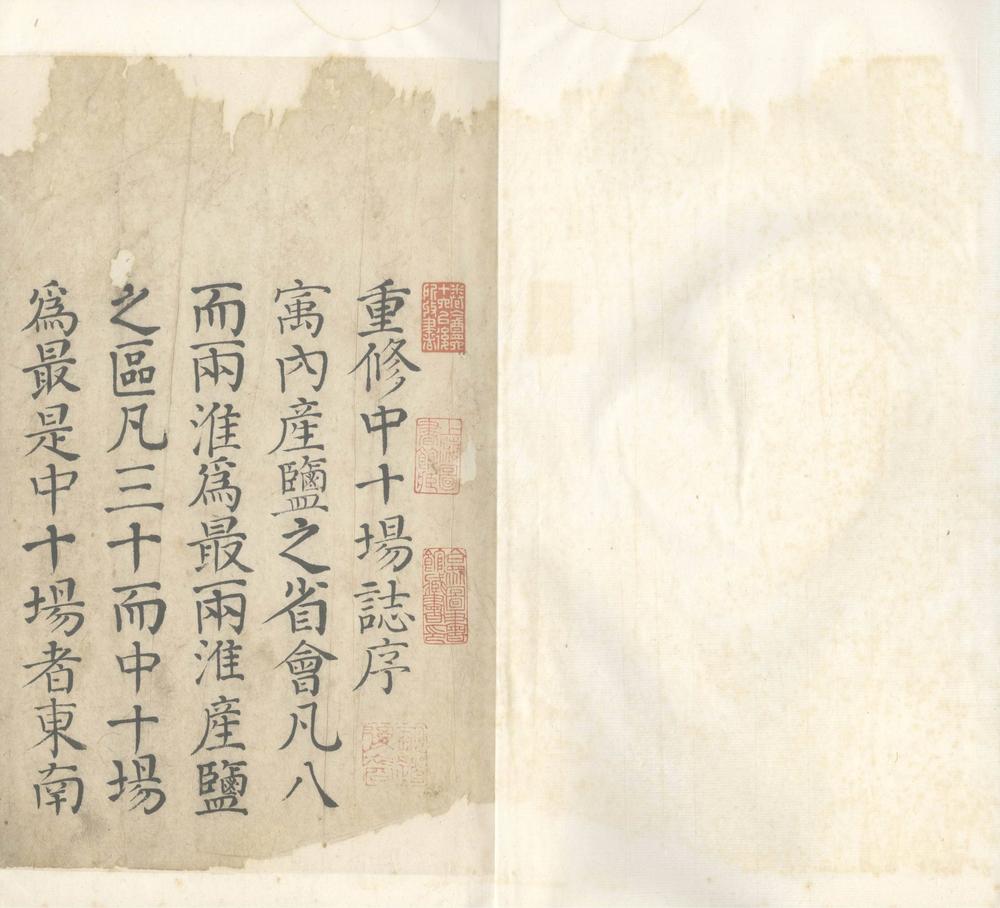 重修中十場誌序
寓內産鹽之省會凡八
而兩淮爲最兩淮産鹽
之區凡三十而中十場
爲最是中十場者東南
上海圖書館藏